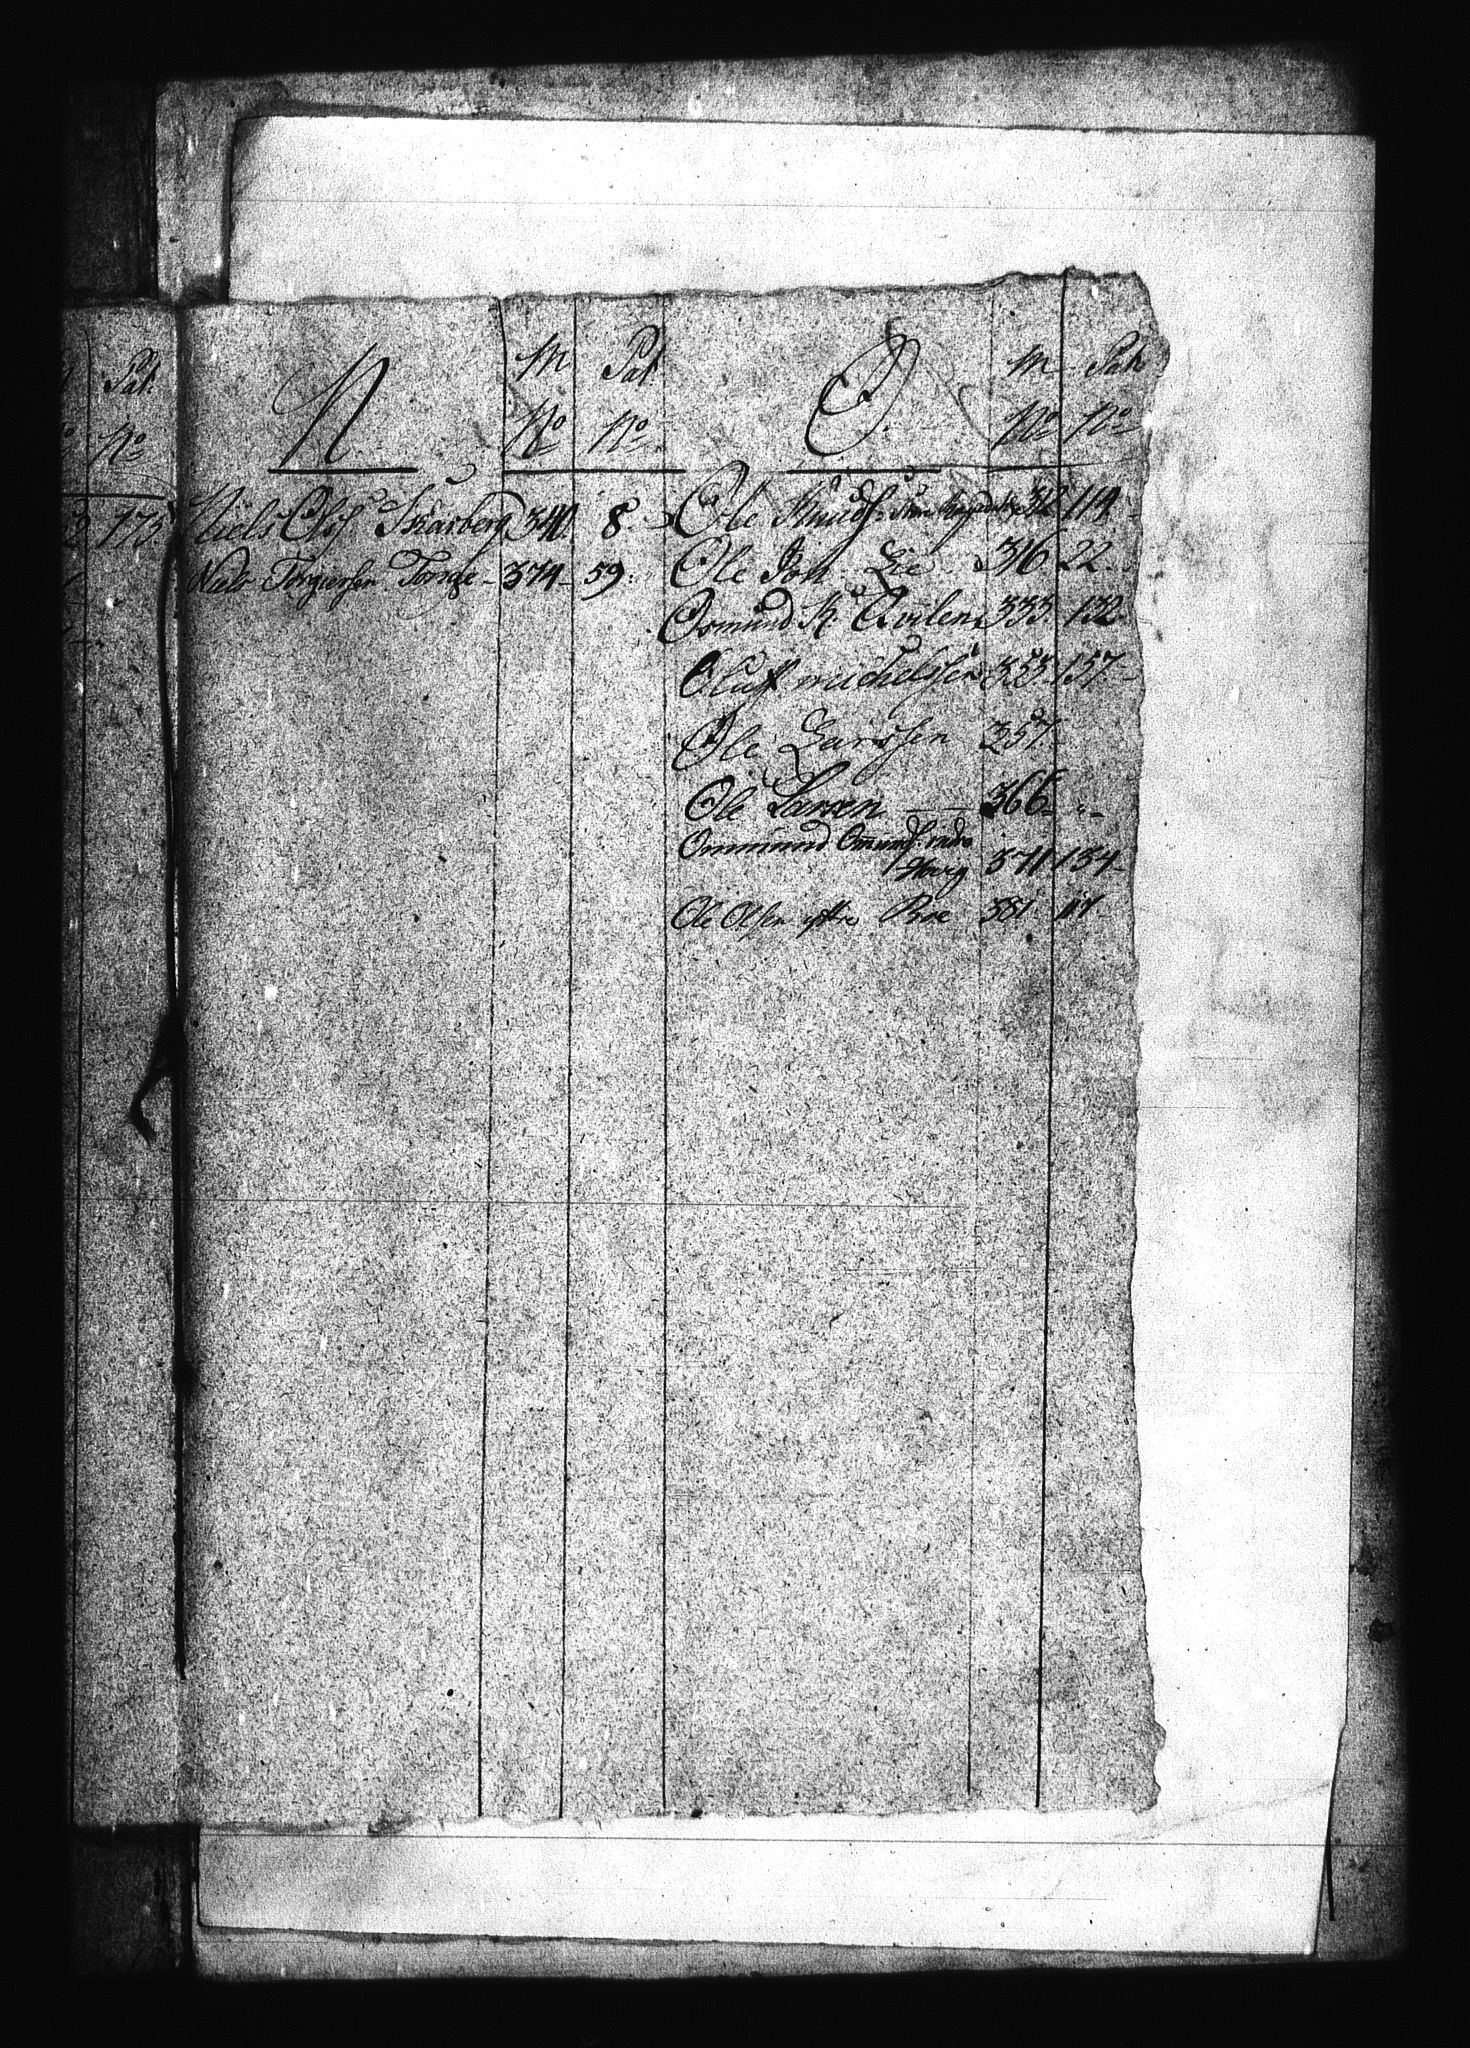 Pat:
No
175.
N.
M
No
Pat.
No
Niels Ols: Skarberg 340. 8.
Niels Torgiersen Torsge - 374 - 59.
O.
M
No
Pat.
No
Ole Knuds: 114.
Ole Joh. Lie 316 22.
Osmund K. Qvilen 333. 132.
Oluff Michelsen 353. 157 -
Ole Larssen 357.
Ole Larsen 366 - " -
Ommund Omunds: indre
Hoeg 371 154 -
Ole Olsen yttre Roe 381. 117.